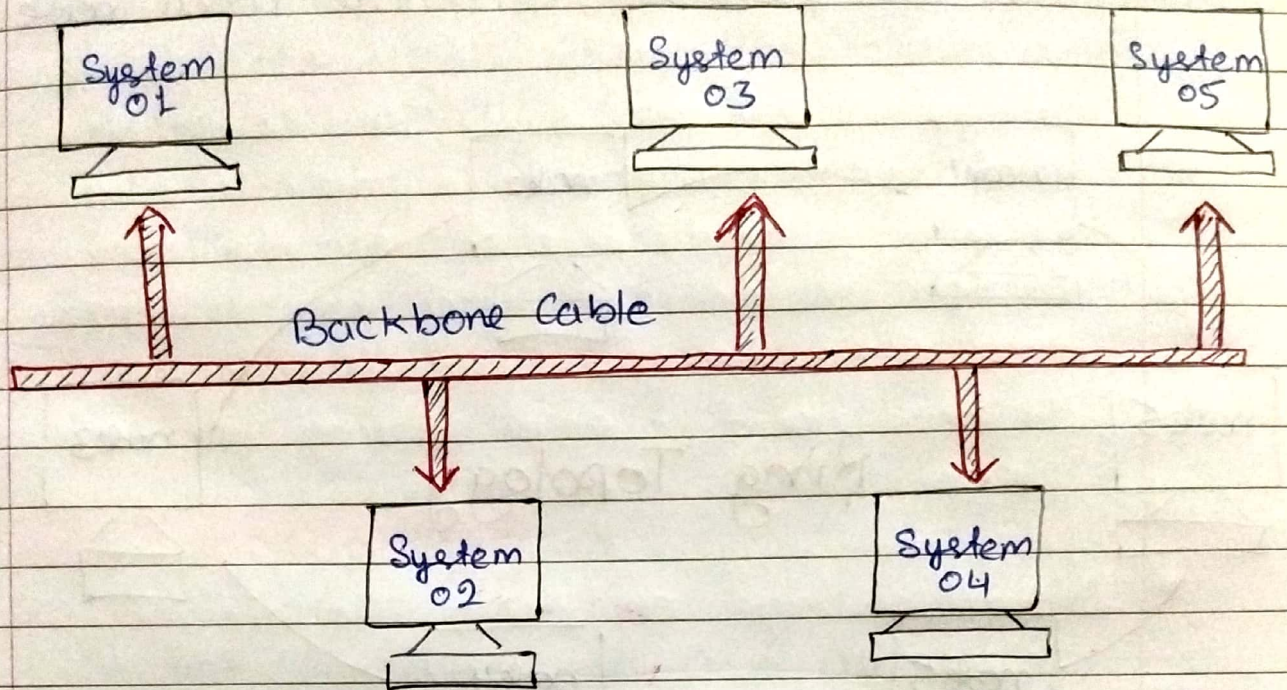 System
01
System
03
System
05
Backbone Cable
System
02
System
04